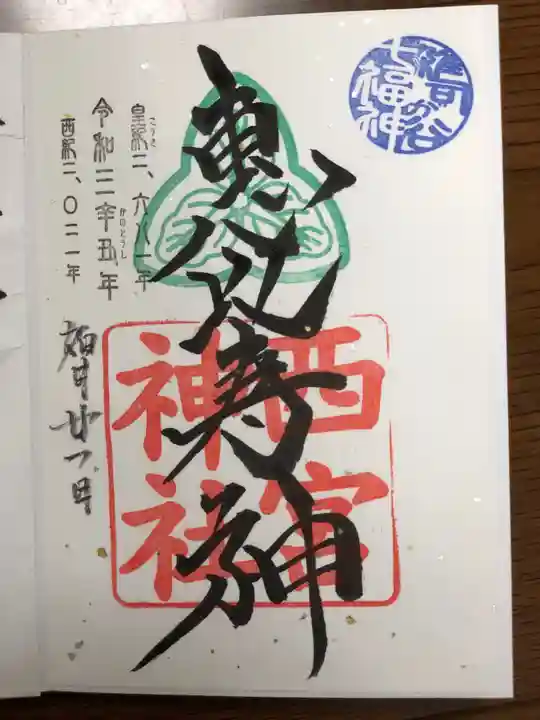 七福神
恵比寿神
西宮
神社
皇紀二、六八一年
こうき
令和三辛丑年
かのとうし
西紀二、〇二一年
如月廿一日